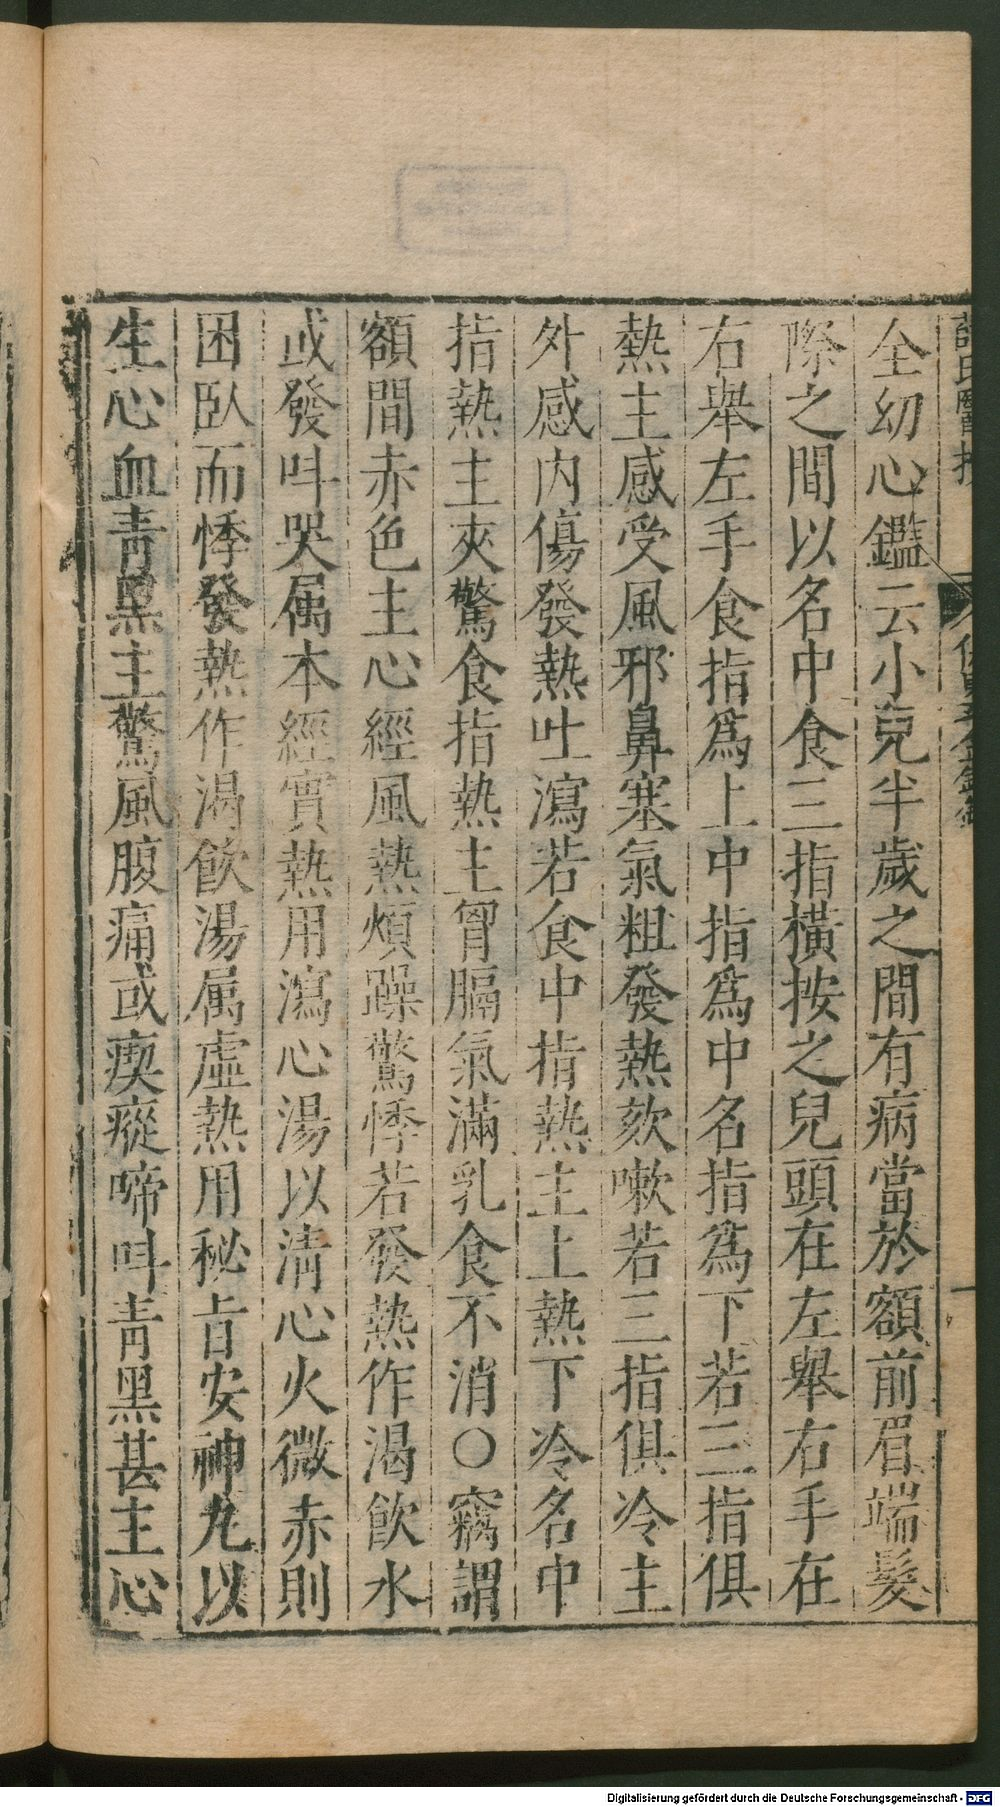 全幼心鑑云小兒半歲之間有病當於額前眉端髮
際之間以名中食三指橫按之兒頭在左舉右手在
右舉左手食指爲上中指爲中名指爲下若三指俱
熱主感受風邪鼻塞氣粗發熱欬嗽若三指俱冷主
外感内傷發熱吐瀉若食中指熱主上熱下冷名中
指熱主夾驚食指熱主胷膈氣滿乳食不消○竊謂
額間赤色主心經風熱煩躁驚悸若發熱作渴飲水
或發呌哭属本經實熱用瀉心湯以清心火微赤則
困臥而悸發熱作渴飲湯属虛熱用秘旨安神丸以
生心血青黑主驚風腹痛或瘈瘲啼呌青黑甚主心
Digitalisierung gefördert durch die Deutsche Forschungsgemeinschaft - DFG